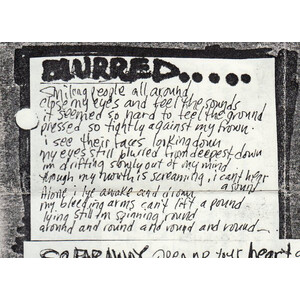 BLURRED.....
Smiling people all around
close my eyes and feel the sounds
it seemed so hard to feel the ground
pressed so tightly against my frown.
i see their faces looking down
my eyes still blurred from deepest down
im drifting souly out of my mind
though my mouth is screaming, i can't hear
a sound
Alone i lye awake and drown
my bleeding arms can't lift a pound
lying still im spinning round
around and round and round and round
SO FAR AWAY open up your heart